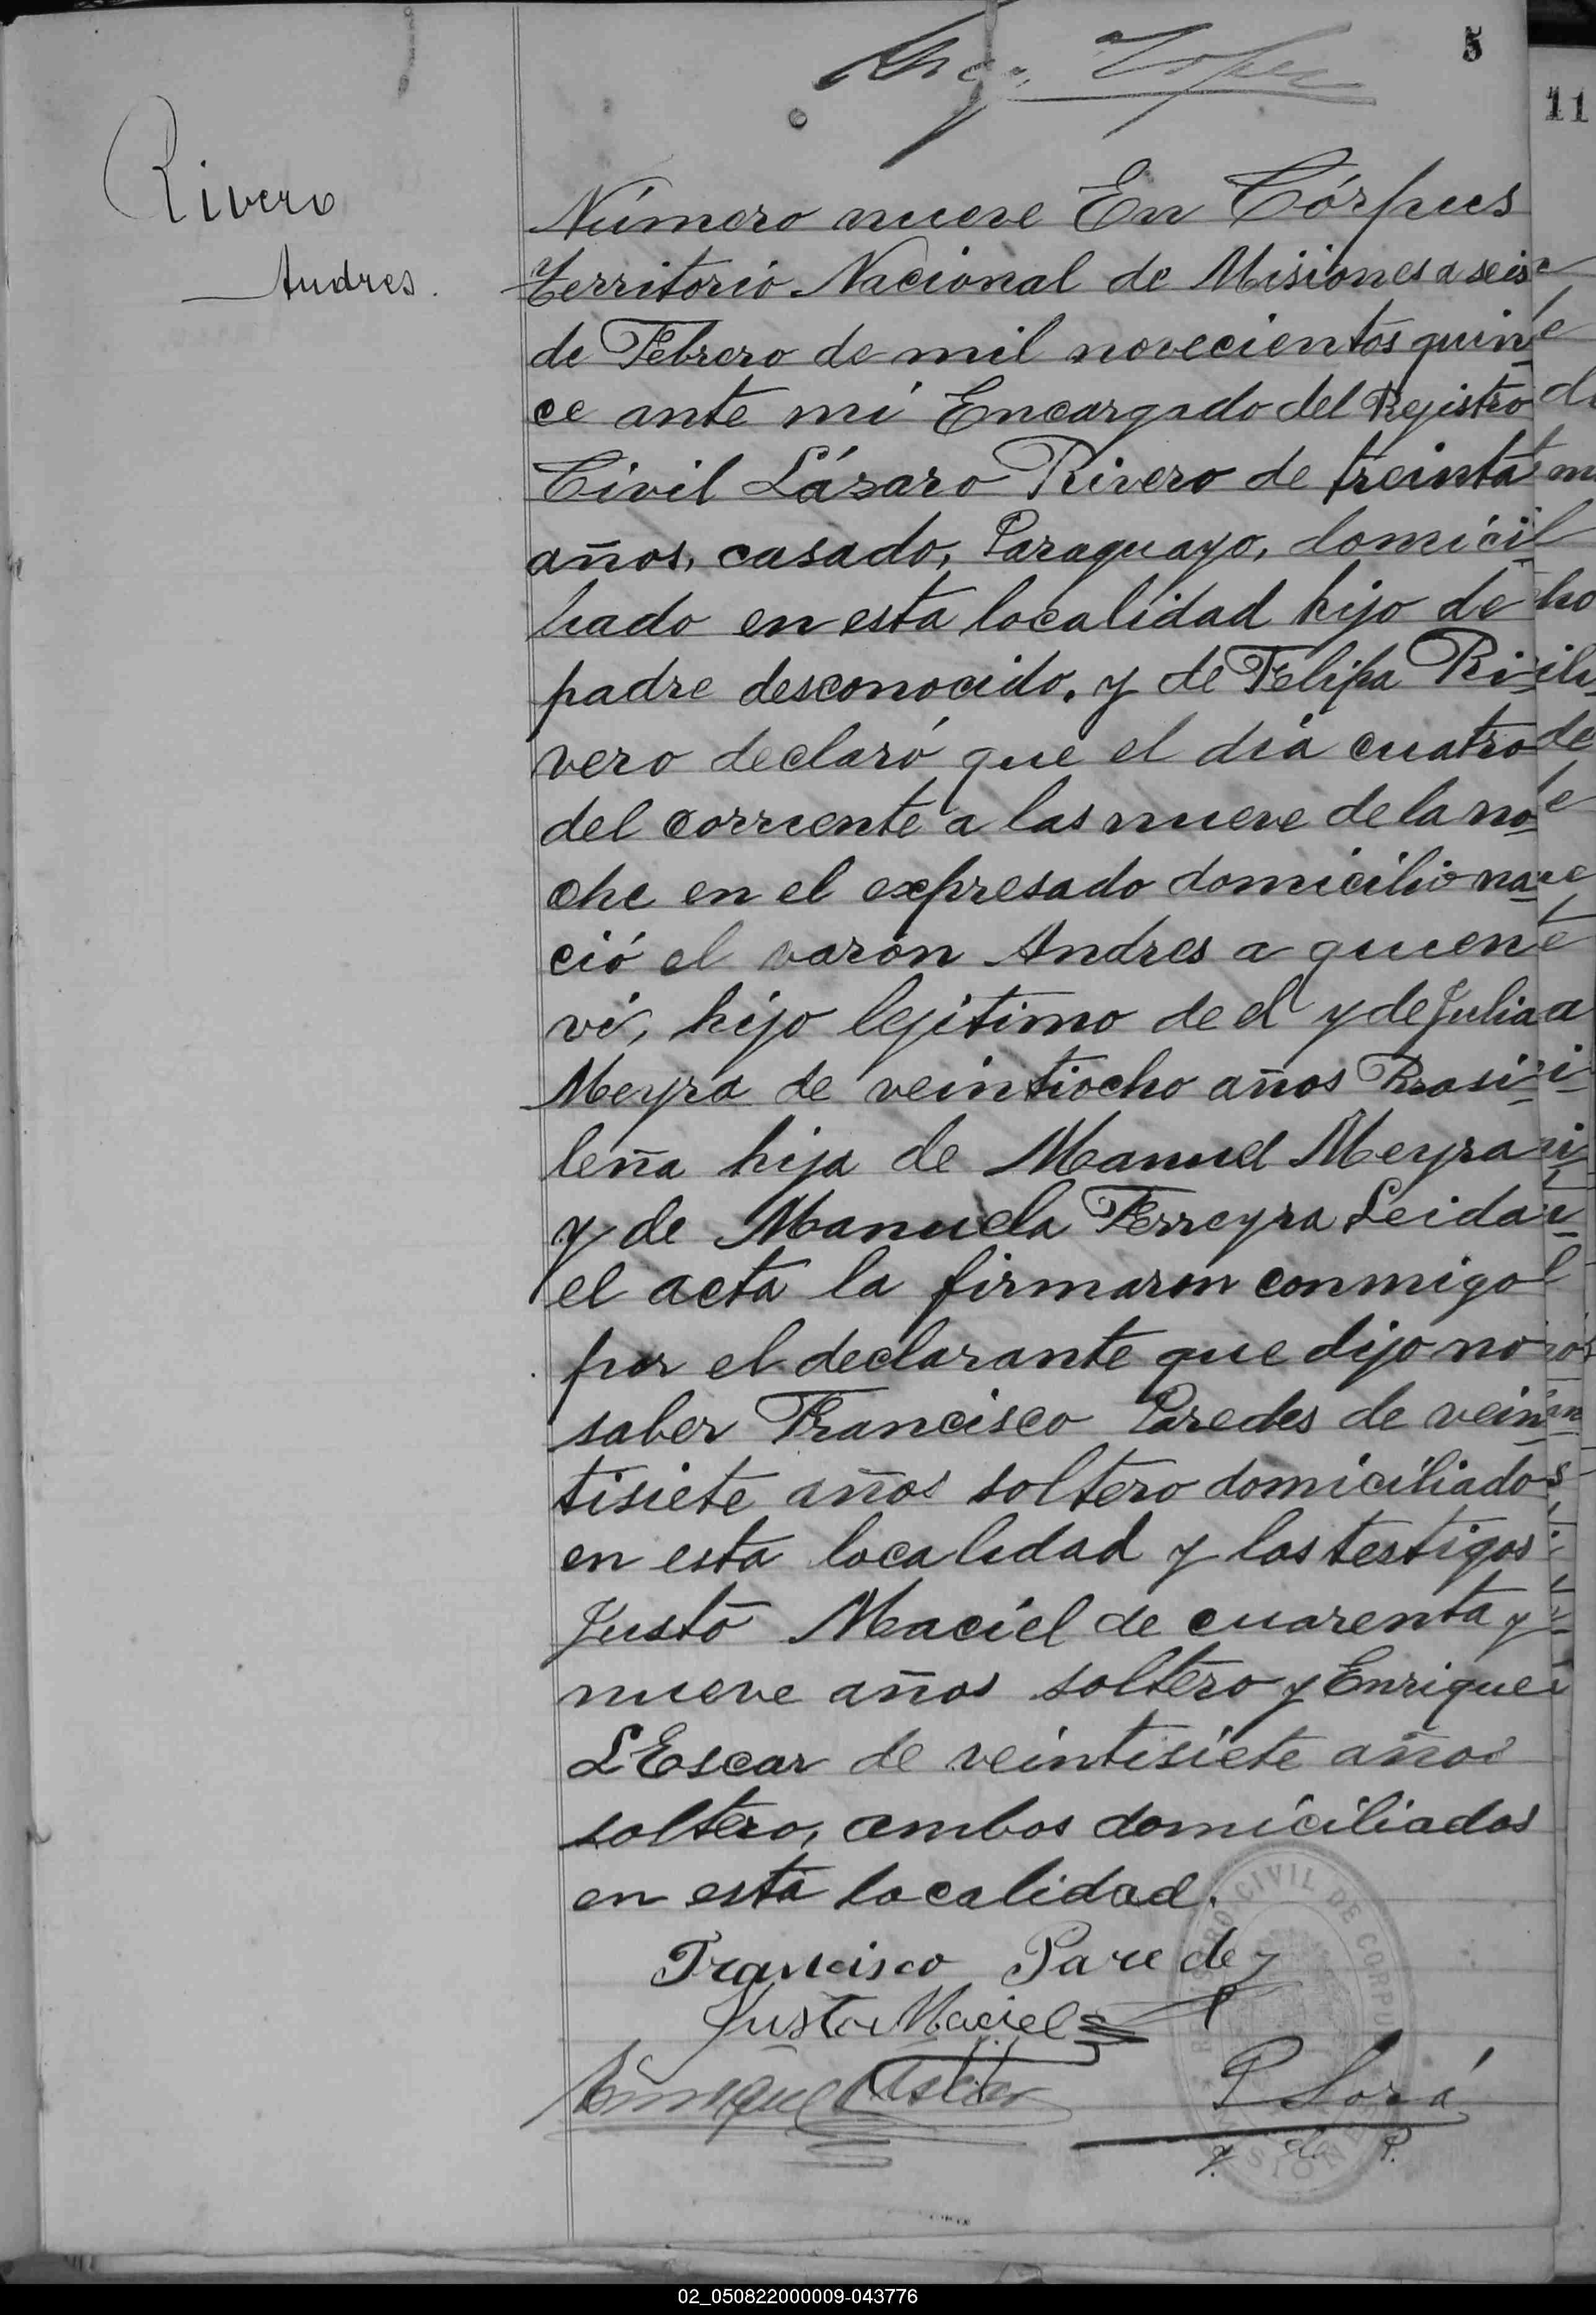 5
11
Rivero
Andres.
Número nueve En Córpus
Territorio Nacional de Misiones a seis
de Febrero de mil novecientos quin
ce ante mi Encargado del Rejistro
Civil Lázaro Rivero de treinta
años, casado, Paraguayo, domicil
liado en esta localidad hijo de
padre desconocido. y de Felipa Ri-
vero declaró que el dia cuatro
del corriente a las nueve de la no-
che en el expresado domicilio na-
ció el varon Andres a quien
vi, hijo lejitimo de el y de Julia
Meyra de veintiocho años Brasi-
leña hija de Manuel Meyra
y de Manuela Ferreyra Leida
el acta la firmaron conmigo
por el declarante que dijo no
saber Francisco Paredes de vein-
tisiete años soltero domiciliado
en esta localidad y los testigos
Justo Maciel de cuarenta y
nueve años soltero y Enrique
L'Escar de veintisiete años
soltero, ambos domiciliados
en esta localidad.
Francisco Paredez
Justo Maciel
REGISTRO CIVIL DE CORPUS
MISIONES
02_050822000009-043776